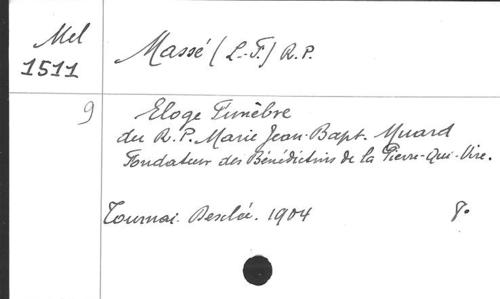 Mel
1511
Massé (L.-F.) R.P.
9
Eloge Funèbre
du R.P. Marie Jean-Bapt. Muard
Fondateur des Bénédictins de la Pierre-Qui-Vire.
Tournai. Desclée. 1904
8°